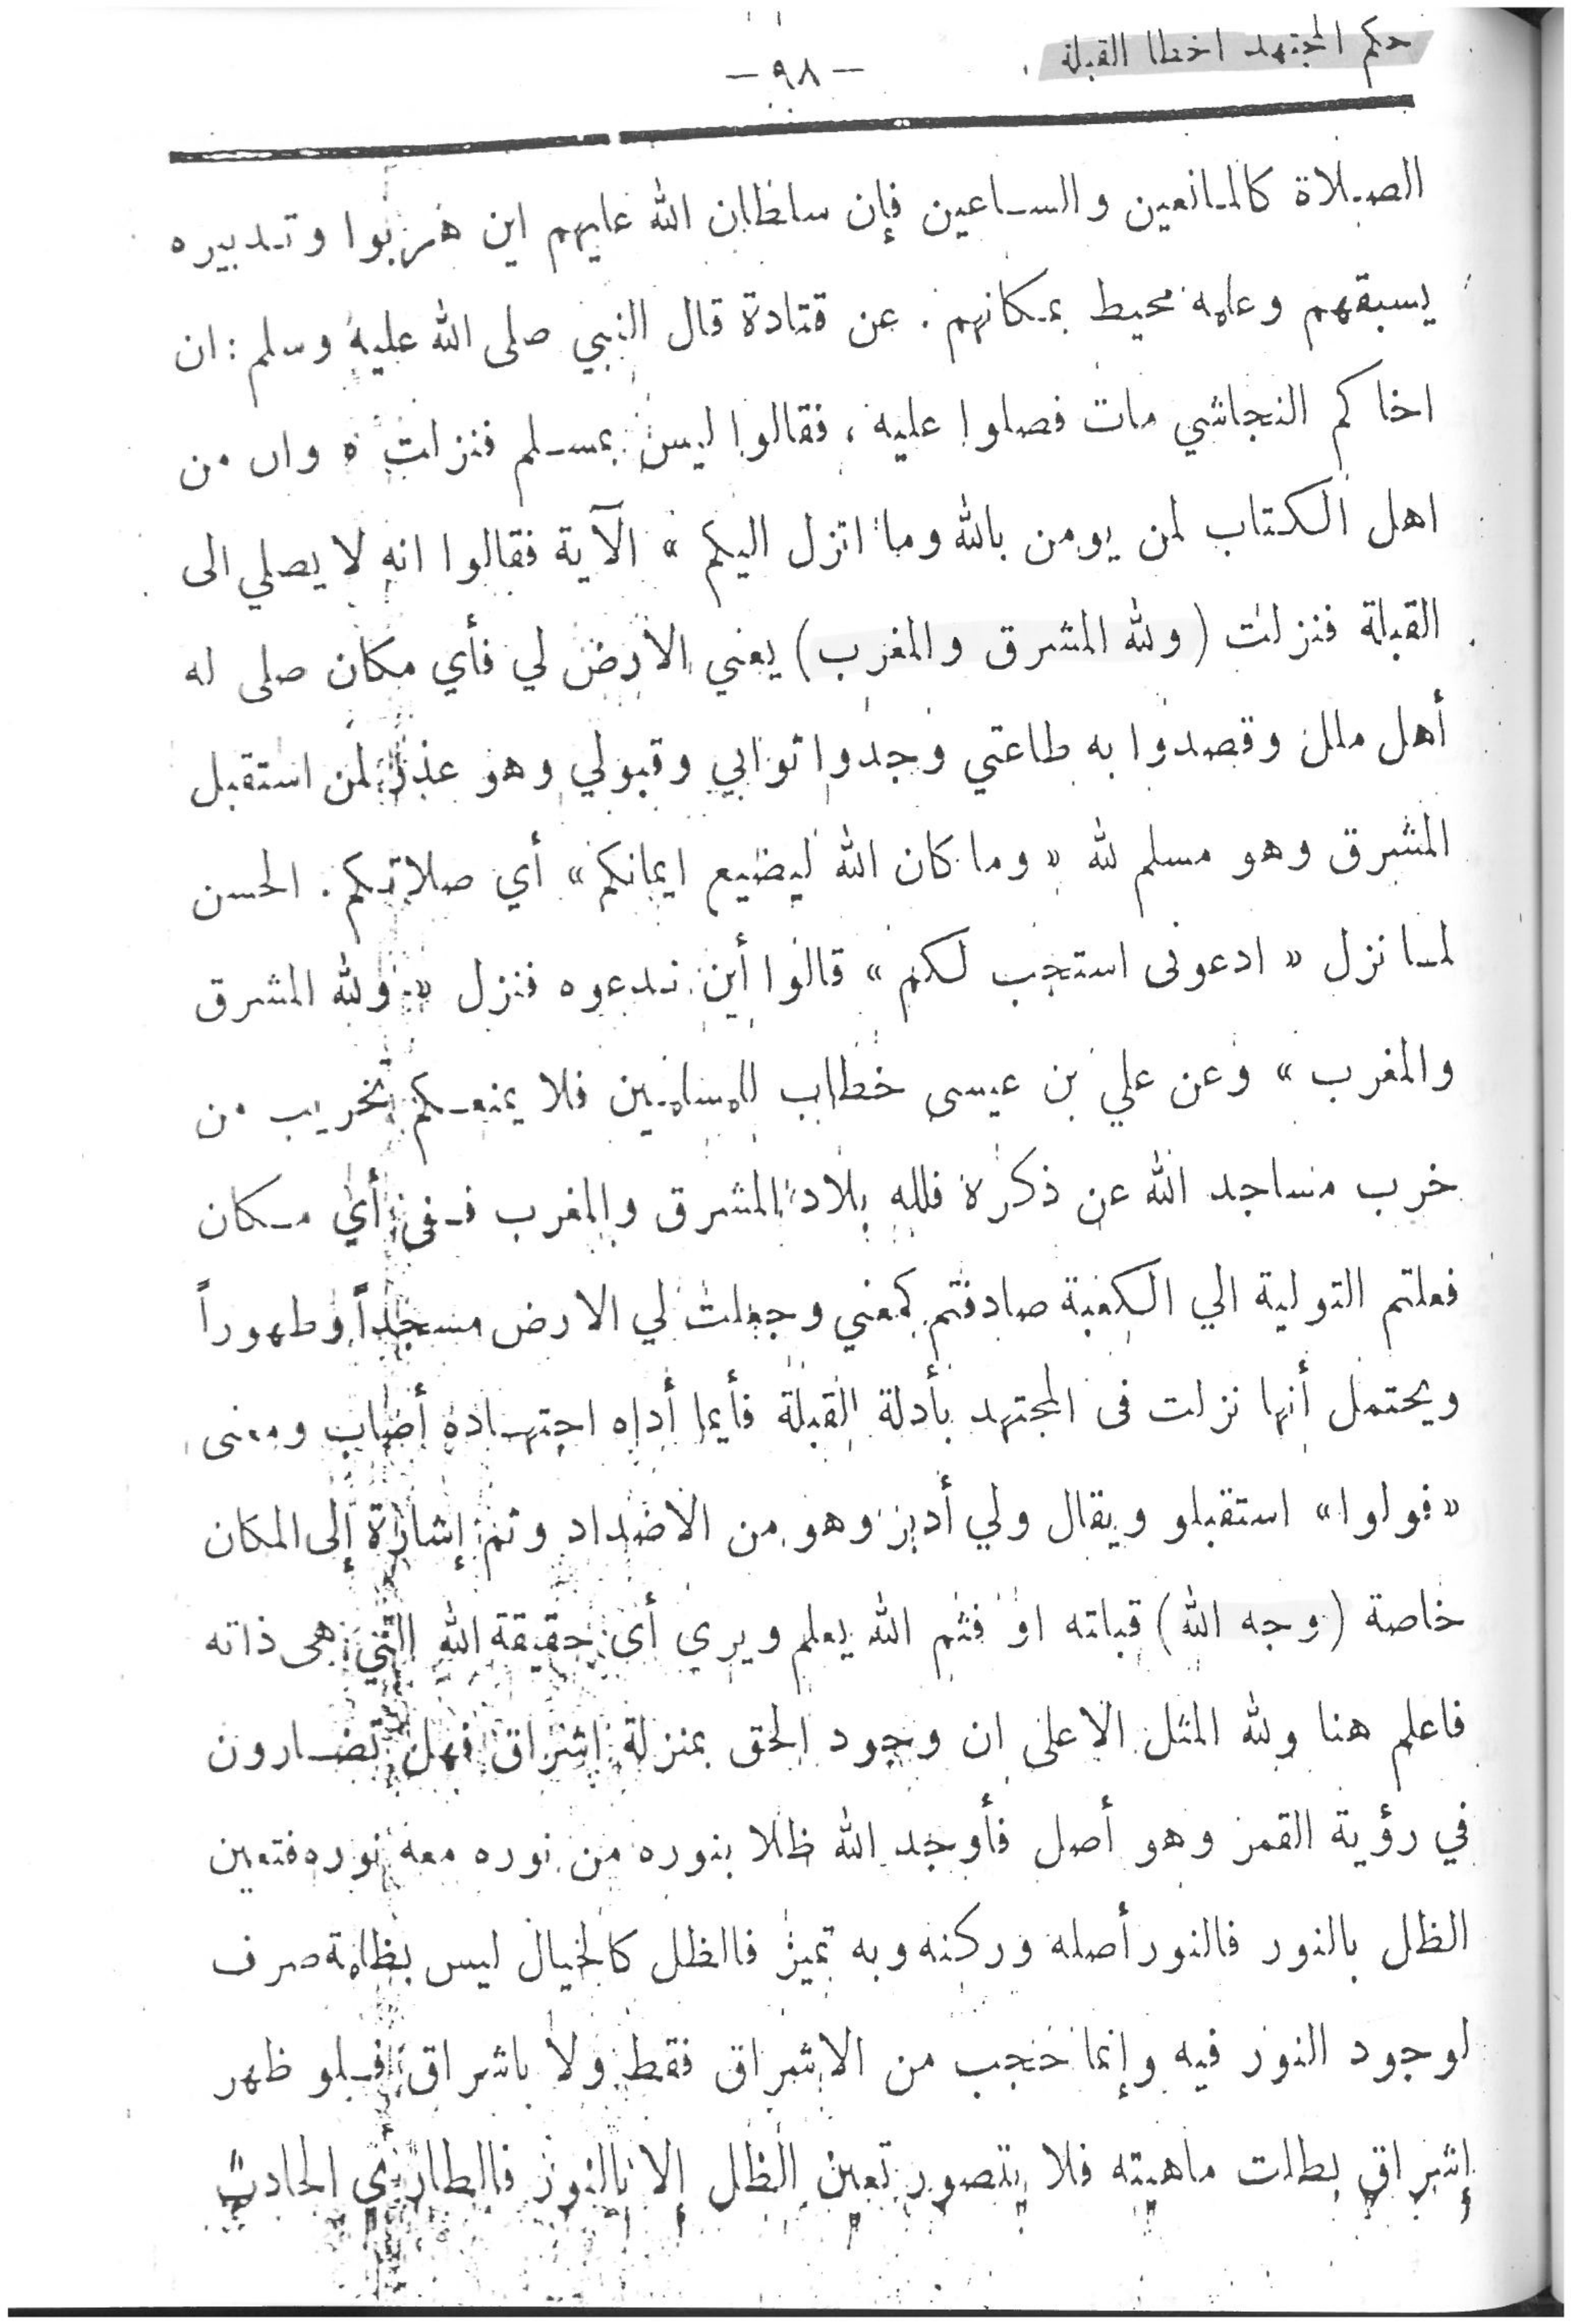 حكم المجتهد اخطا القبلة
— ٩٨ —
الصلاة كالمانعين والساعين فإن سلطان الله عليهم اين هربوا وتدبيره
يسبقهم وعلمه محيط بمكانهم . عن قتادة قال النبي صلى الله عليه وسلم : ان
اخا كم النجاشي مات فصلوا عليه ، فقالوا ليس بمسلم فنزلت « وان من
اهل الكتاب لمن يومن بالله وما انزل اليكم » الآية فقالوا انه لا يصلي الى
القبلة فنزلت (ولله المشرق والمغرب) يعني الارض لي فأي مكان صلى له
أهل ملل وقصدوا به طاعتي وجدوا ثوابي وقبولي وهو عذر لمن استقبل
المشرق وهو مسلم لله « وما كان الله ليضيع ايمانكم » أي صلاتكم . الحسن
لما نزل « ادعونى استجب لكم » قالوا أين ندعوه فنزل « ولله المشرق
والمغرب » وعن علي بن عيسى خطاب للمسلمين فلا يمنعكم تخريب من
خرب مساجد الله عن ذكره فلله بلاد المشرق والمغرب ففى أي مكان
فعلتم التولية الي الكعبة صادفتم كمعني وجعلت لي الارض مسجداً وطهوراً
ويحتمل أنها نزلت فى المجتهد بأدلة القبلة فأيما أداه اجتهاده أصاب ومعنى
« فولوا » استقبلو ويقال ولي أدبر وهو من الاضداد وثم إشارة إلى المكان
خاصة (وجه الله) قبلته او فثم الله يعلم ويرى أى حقيقة الله التي هى ذاته
فاعلم هنا ولله المثل الاعلى ان وجود الحق بمنزلة اشراق فهل تضارون
في رؤية القمر وهو أصل فأوجد الله ظلا بنوره من نوره معه نوره فتعين
الظل بالنور فالنور أصله وركنه وبه تميز فالظل كالخيال ليس بظلمة صرف
لوجود النور فيه وإنما حجب من الاشراق فقط ولا باشراق فلو ظهر
إشراق بطلت ماهيته فلا يتصور تعين الظل إلا بالنور فالطاري الحادث